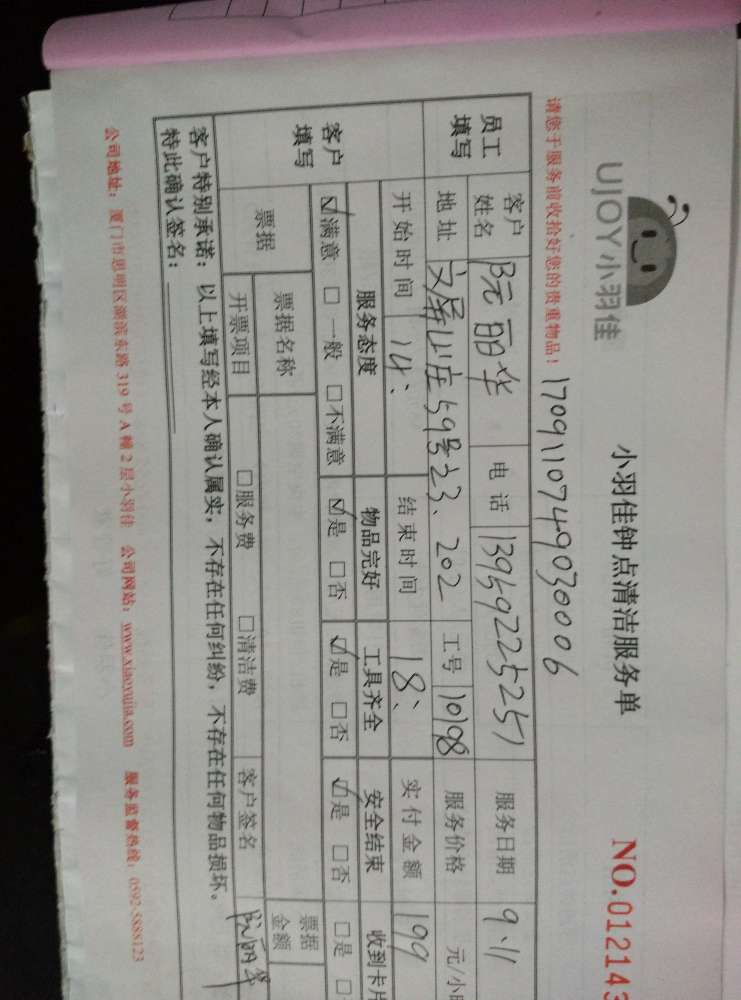 UJOY小羽佳
小羽佳钟点清洁服务单
NO.012143
请您于服务前收拾好您的贵重物品！
17091107490030006
员工填写 客户姓名 阮丽华 电话 13959225251 服务日期 9.11
地址 文屏山庄59号之3、202 工号 10198 服务价格 元/小时
客户填写 开始时间 14： 结束时间 18： 实付金额 199
服务态度 物品完好 工具齐全 安全结束 收到卡片
☑满意 □一般 □不满意 ☑是 □否 ☑是 □否 ☑是 □否 □是
票据 票据名称 票据金额
开票项目 □服务费 □清洁费 客户签名 阮丽华
客户特别承诺：以上填写经本人确认属实，不存在任何纠纷，不存在任何物品损坏。
特此确认签名：
公司地址：厦门市思明区湖滨东路319号A幢2层小羽佳 公司网站：www.xiaoyujia.com 服务监督热线：0592-5888123